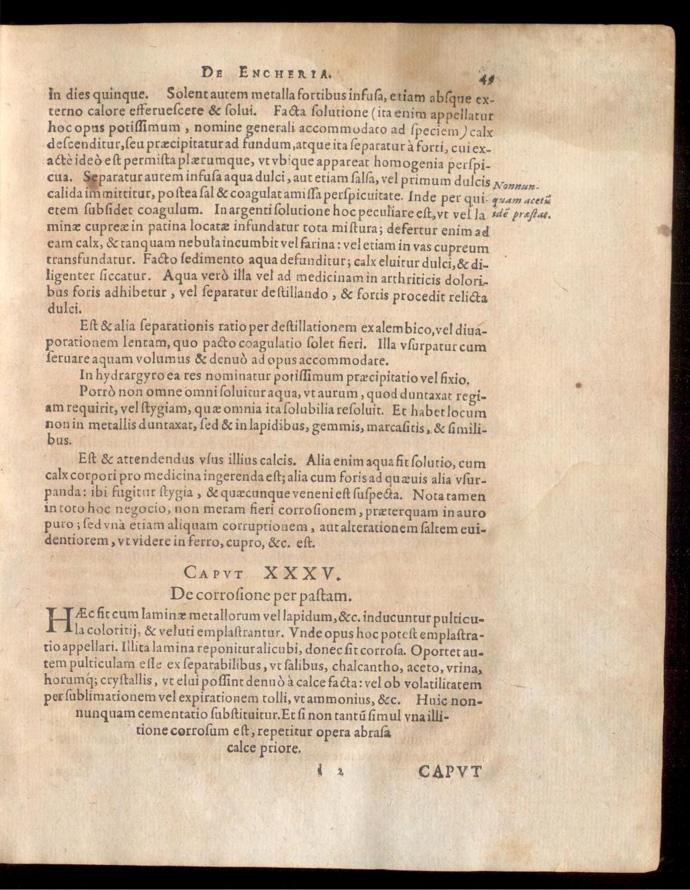 DE ENCHERIA. 49
In dies quinque. Solent autem metalla fortibus infusa, etiam absque ex-
terno calore efferuescere & solui. Facta solutione (ita enim appellatur
hoc opus potissimum, nomine generali accommodato ad speciem) calx
descenditur, seu præcipitatur ad fundum, atque ita separatur à forti, cui ex-
actè ideò est permista plærumque, vt vbique appareat homogenia perspi-
cua. Separatur autem infusa aqua dulci, aut etiam salsa, vel primum dulcis
calida immittitur, postea sal & coagulat amissa perspicuitate. Inde per qui-
etem subsidet coagulum. In argenti solutione hoc peculiare est, vt vel la
minæ cupreæ in patina locatæ infundatur tota mistura; defertur enim ad
eam calx, & tanquam nebula incumbit vel farina: vel etiam in vas cupreum
transfundatur. Facto sedimento aqua defunditur; calx eluitur dulci, & di-
ligenter siccatur. Aqua verò illa vel ad medicinam in arthriticis dolori-
bus foris adhibetur, vel separatur destillando, & fortis procedit relicta
dulci.
Nonnun-
quam acetū
idē præstat.
Est & alia separationis ratio per destillationem ex alembico, vel diua-
porationem lentam, quo pacto coagulatio solet fieri. Illa vsurpatur cum
seruare aquam volumus & denuò ad opus accommodare.
In hydrargyro ea res nominatur potissimum præcipitatio vel fixio.
Porrò non omne omni soluitur aqua, vt aurum, quod duntaxat regi-
am requirit, vel stygiam, quæ omnia ita solubilia resoluit. Et habet locum
non in metallis duntaxat, sed & in lapidibus, gemmis, marcasitis, & simili-
bus.
Est & attendendus vsus illius calcis. Alia enim aqua fit solutio, cum
calx corpori pro medicina ingerenda est; alia cum foris ad quæuis alia vsur-
panda: ibi fugitur stygia, & quæcunque veneni est suspecta. Nota tamen
in toto hoc negocio, non meram fieri corrosionem, præterquam in auro
puro; sed vnà etiam aliquam corruptionem, aut alterationem saltem eui-
dentiorem, vt videre in ferro, cupro, &c. est.
CAPVT XXXV.
De corrosione per pastam.
HÆc fit cum laminæ metallorum vel lapidum, &c. inducuntur pulticu-
la coloritij, & veluti emplastrantur. Vnde opus hoc potest emplastra-
tio appellari. Illita lamina reponitur alicubi, donec sit corrosa. Oportet au-
tem pulticulam esse ex separabilibus, vt salibus, chalcantho, aceto, vrina,
horumq; crystallis, vt elui possint denuò à calce facta: vel ob volatilitatem
per sublimationem vel expirationem tolli, vt ammonius, &c. Huic non-
nunquam cementatio substituitur. Et si non tantū simul vna illi-
tione corrosum est, repetitur opera abrasa
calce priore.
d 2 CAPVT